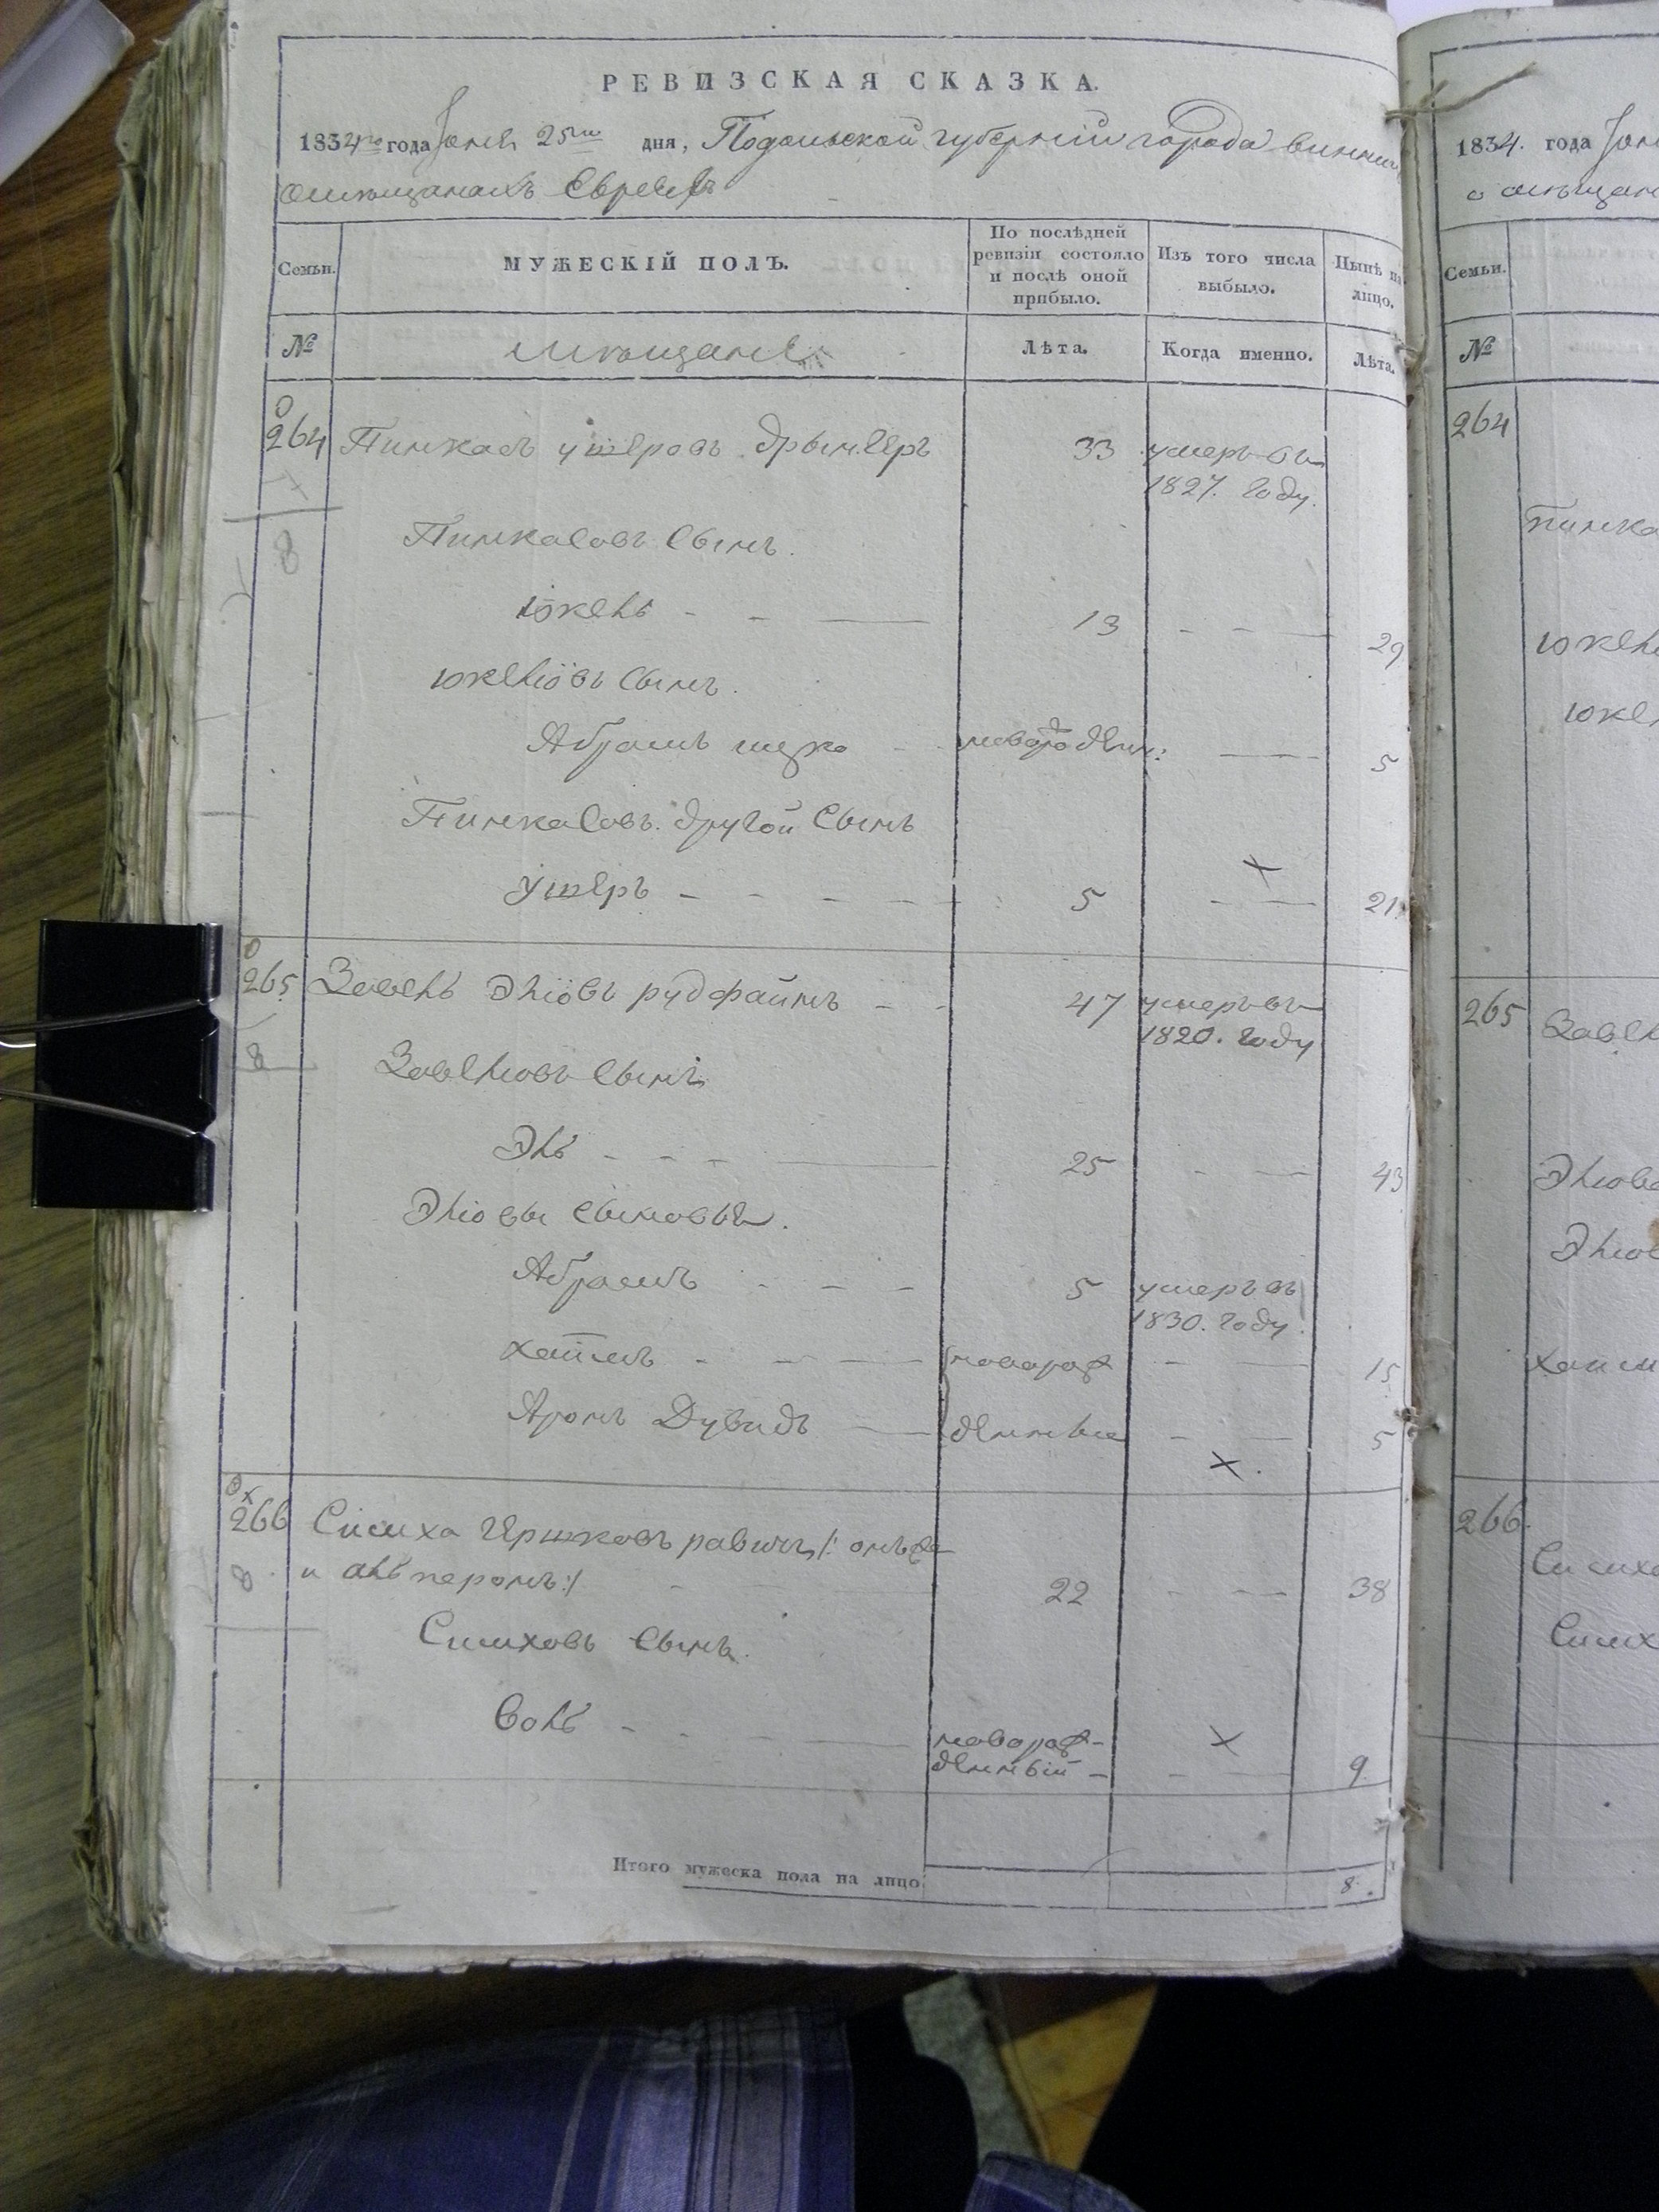 РЕВИЗСКАЯ СКАЗКА.
1834го года Іюня 25го дня, Подольской губерніи города Винни
о мѣщанахъ Евреяхъ
Семьи.
МУЖЕСКІЙ ПОЛЪ.
По послѣдней ревизіи состояло и послѣ оной прибыло.
Изъ того числа выбыло.
Нынѣ на лицо.
№
мѣщане
Лѣта.
Когда именно.
Лѣта.
264 Пинкасъ Ушеровъ 33 умеръ въ
1827. году.
7
8
Пинкасовъ сынъ.
Юкель - - 13 - - 29
Юкеліовъ сынъ.
Абрамъ Ицко - новорожден: 5
Пинкасовъ другой сынъ
Ушеръ - - - - 5 - 21
265 Завель Эліовъ Рудфайнъ - - 47 умеръ въ
1820. году
8
Завеліовъ сынъ
Эль - - - 25 - - 43
Эліовы сыновья.
Абрамъ - - - 5 умеръ въ
1830. году.
Хаимъ - - новорож - 15
Аронъ Дувидъ денные - 5
266 Симха Гершковъ Равичъ /: онъ же
и Альперонъ :/ - 22 - - 38
8
Симховъ сынъ.
Воль - - новорож-
денный - 9
Итого мужеска пола на лицо 8.
1834. года
о мѣщан
Семьи.
№
264
Пинка
Юкел
Юкел
265 Завел
Эліов
Эліов
Хаим
266.
Симх
Симх